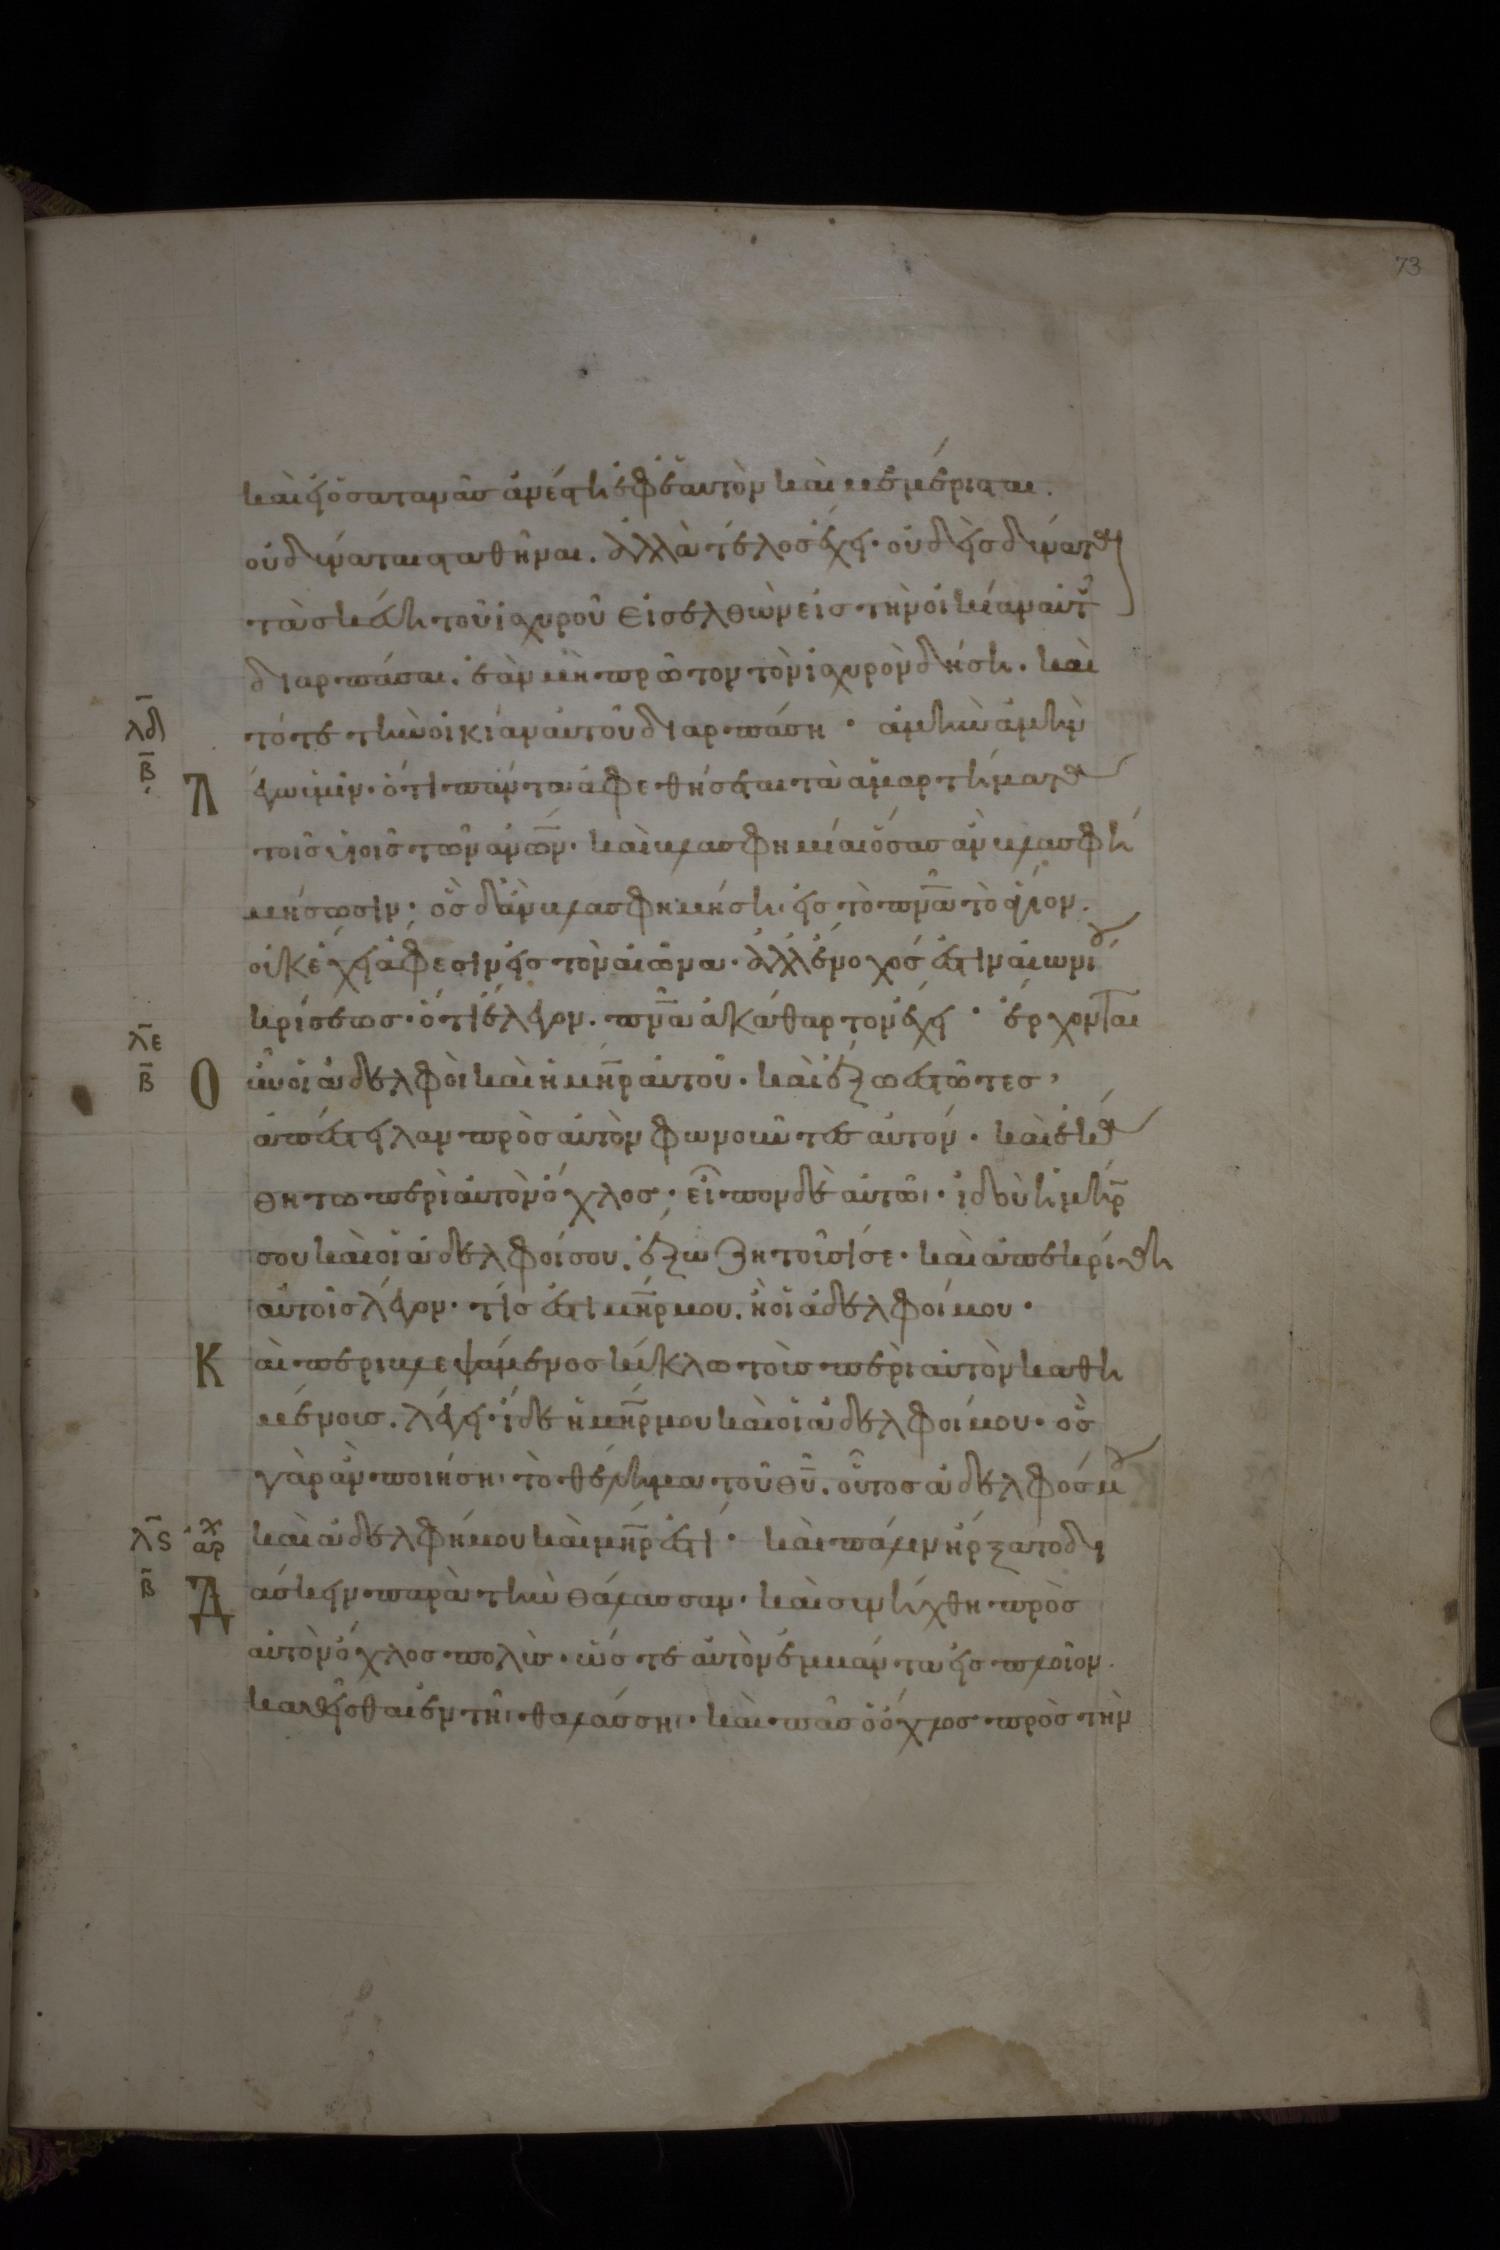 73
καὶ εἰ ὁ σατανᾶσ ἀνέστη ἐφ ἑαυτὸν καὶ μεμέρισται.
οὐ δύναται σταθῆναι. ἀλλὰ τέλοσ ἔχει· οὐδεὶσ δύναται
τὰ σκεύη τοῦ ἰσχυροῦ εἰσελθὼν εἰσ τὴν οἰκίαν αὐτοῦ
διαρπάσαι. ἐὰν μὴ πρῶτον τὸν ἰσχυρὸν δήση. καὶ
τότε τὴν οἰκίαν αὐτοῦ διαρπάση · ἀμὴν ἀμὴν
λδ
β
Λ έγω ὑμῖν· ὅτι πάντα ἀφεθήσεται τὰ ἁμαρτήματα
τοῖσ υἱοῖσ τῶν ἀνων̅· καὶ βλασφημίαι ὅσασ ἂν βλασφη
μήσωσιν· ὃσ δ ἂν βλασφημήση εἰσ τὸ πν̅α τὸ ἅγιον.
οὐκ ἔχει ἄφεσιν εἰσ τὸν αἰῶνα· ἀλλ ἔνοχόσ ἐστιν αἰωνίου
κρίσεωσ· ὅτι ἔλεγον. πν̅α ἀκάθαρτον ἔχει · ἔρχονται
λε
β
Ο ὖν οἱ ἀδελφοὶ καὶ ἡ μη̅ρ αὐτοῦ· καὶ ἔξω ἑστῶτεσ,
ἀπέστειλαν πρὸσ αὐτὸν φωνοῦντεσ αὐτόν· καὶ ἐκά
θητο περὶ αὐτὸν ὄχλοσ· εἶπον δὲ αὐτῶι· ἰδοὺ ἡ μη̅ρ
σου καὶ οἱ ἀδελφοί σου. ἔξω ζητοῦσί σε· καὶ ἀπεκρίθη
αὐτοῖσ λέγων· τίσ ἐστι μη̅ρ μου. ἢ οἱ ἀδελφοί μου·
Κ αὶ περιβλεψάμενοσ κύκλω τοὺσ περὶ αὐτὸν καθη
μένουσ. λέγει· ἴδε ἡ μη̅ρ μου καὶ οἱ ἀδελφοί μου· ὃσ
γὰρ ἂν ποιήση τὸ θέλημα τοῦ θυ̅. οὗτοσ ἀδελφόσ μου
λϛ
β
αρχ
καὶ ἀδελφή μου καὶ μη̅ρ ἐστί· καὶ πάλιν ἤρξατο δι
Δ άσκειν παρὰ τὴν θάλασσαν· καὶ συνήχθη πρὸσ
αὐτὸν ὄχλοσ πολύσ· ὥστε αὐτὸν ἐμβάντα εἰσ πλοῖον.
καθῆσθαι ἐν τῆι θαλάσσηι· καὶ πᾶσ ὁ ὄχλοσ πρὸσ τὴν